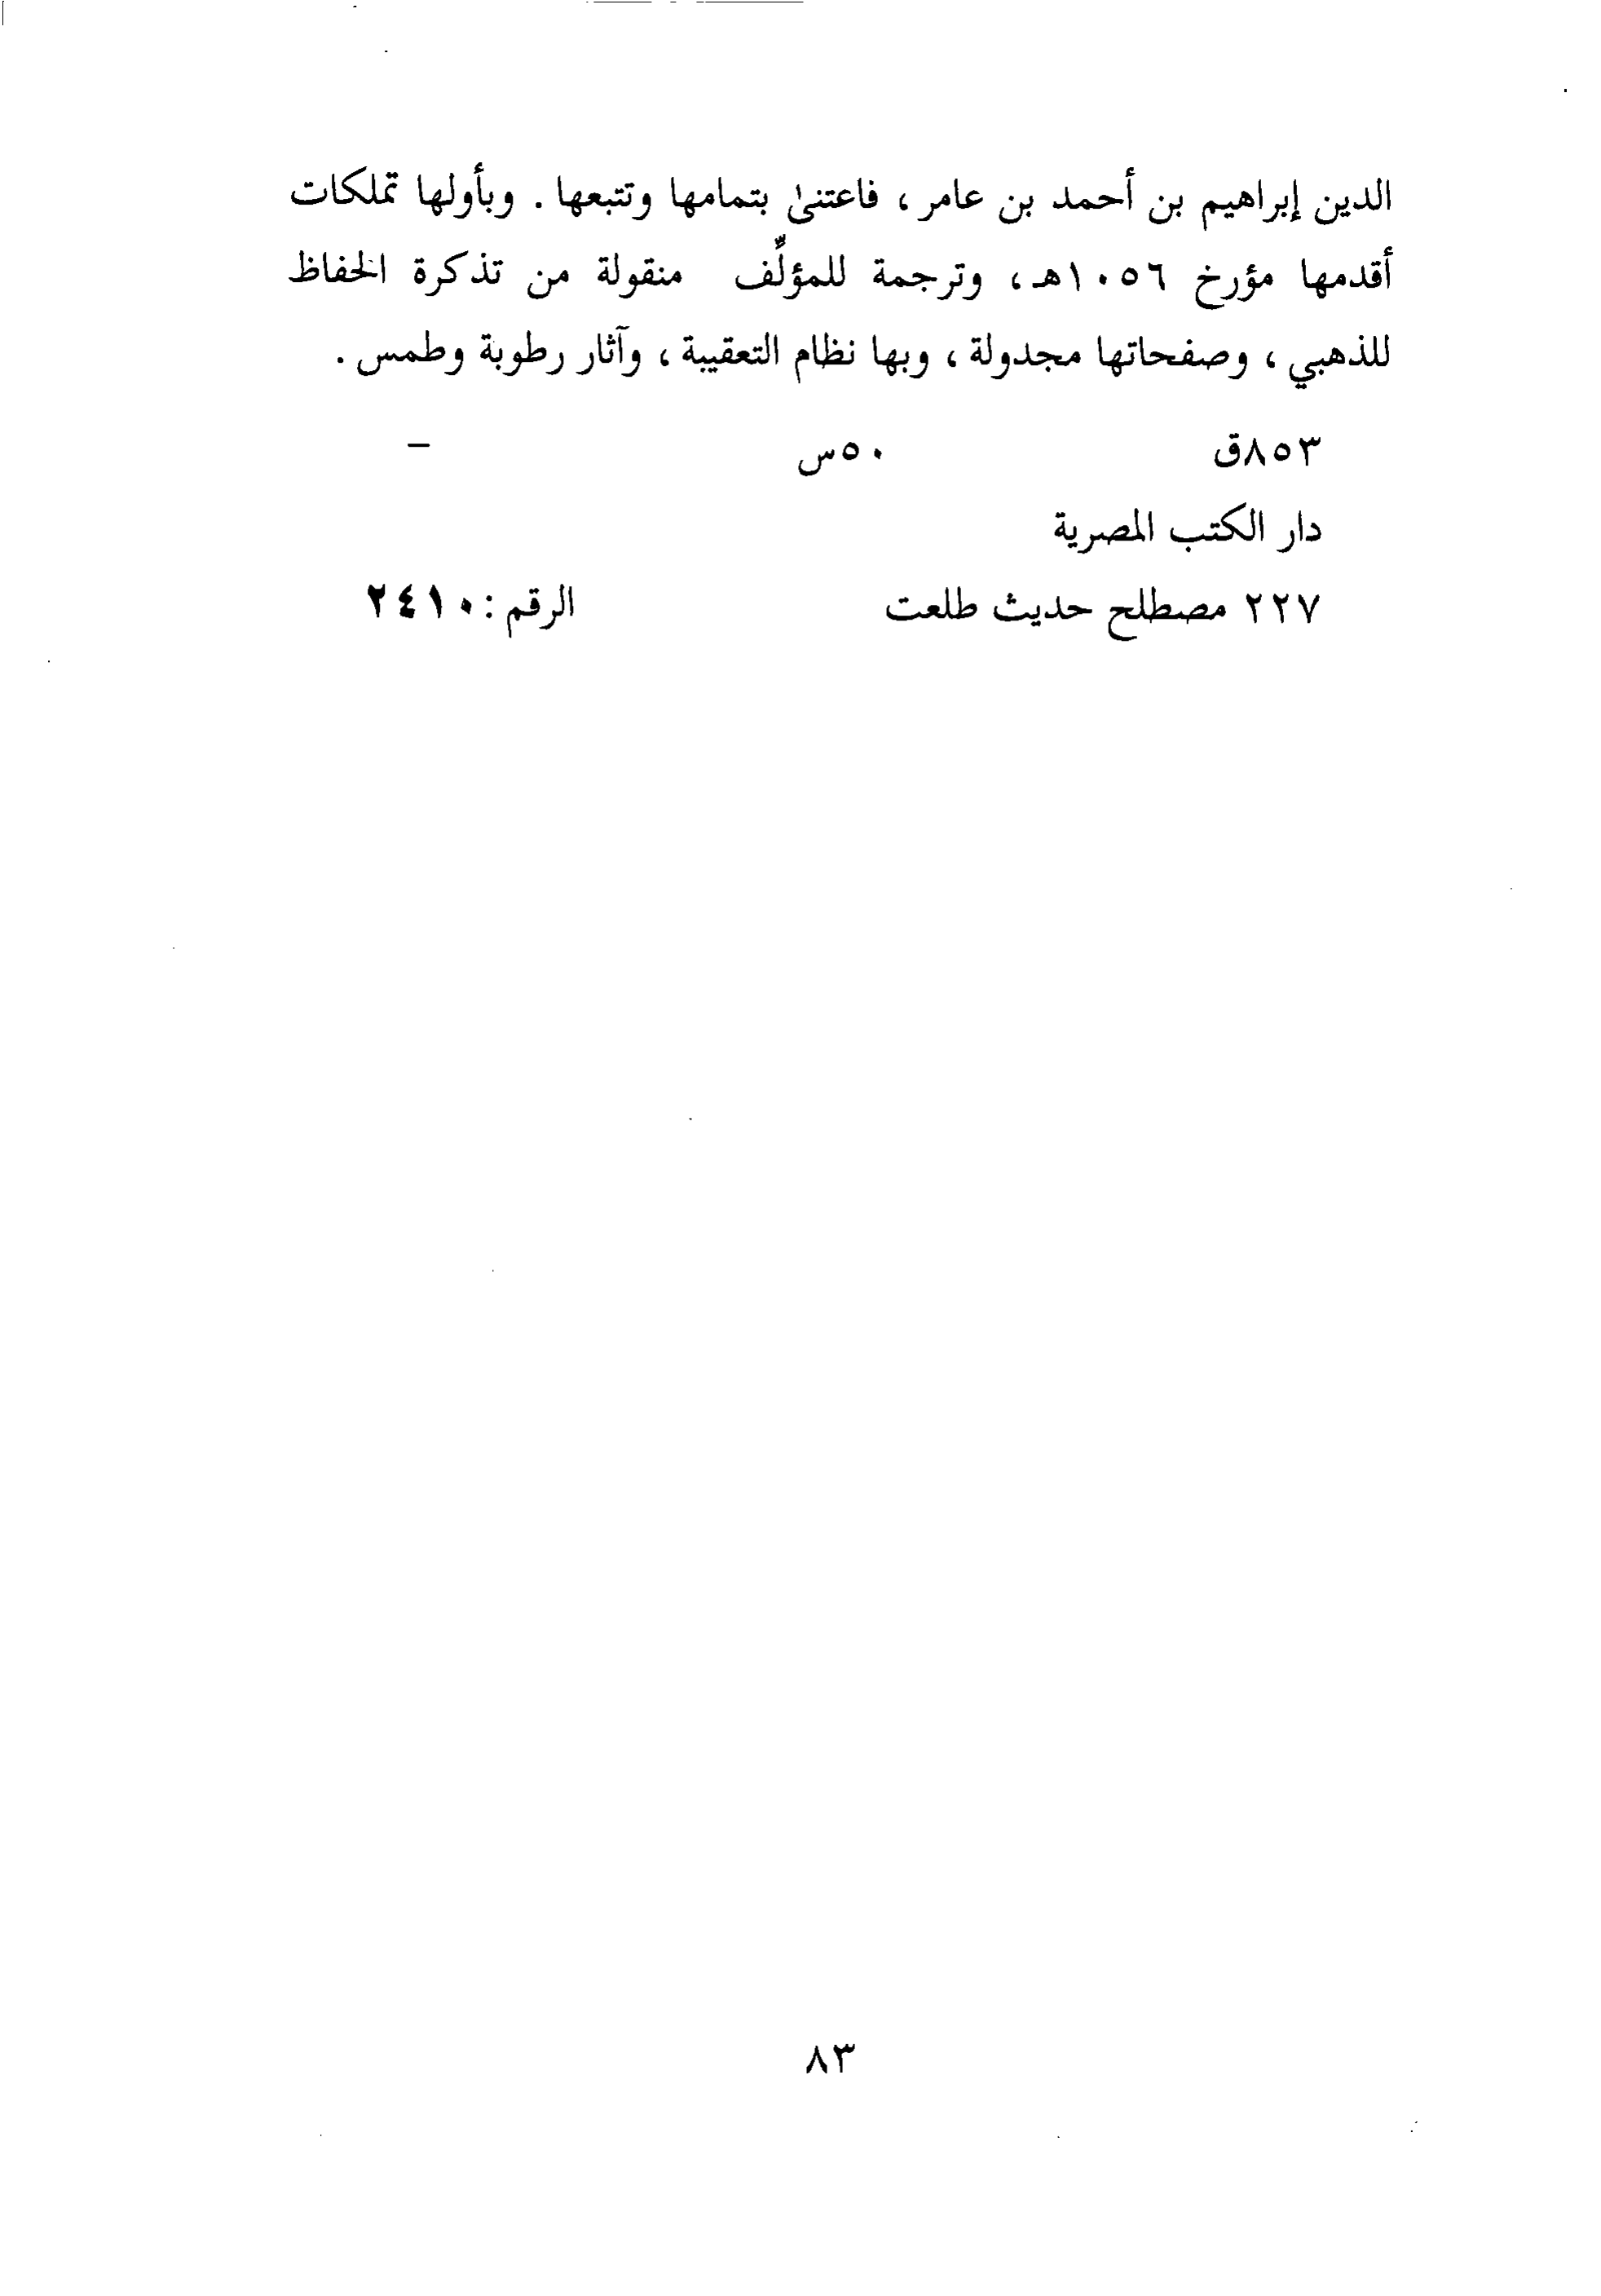 الدين إبراهيم بن أحمد بن عامر ، فاعتنىٰ بتمامها وتتبعها . وبأولها تملكات
أقدمها مؤرخ ١٠٥٦هـ ، وترجمة للمؤلِّف منقولة من تذكرة الحفاظ
للذهبي ، وصفحاتها مجدولة ، وبها نظام التعقيبة ، وآثار رطوبة وطمس .
٨٥٣ق ٥٠س –
دار الكتب المصرية
٢٢٧ مصطلح حديث طلعت الرقم : ٢٤١٠
٨٣